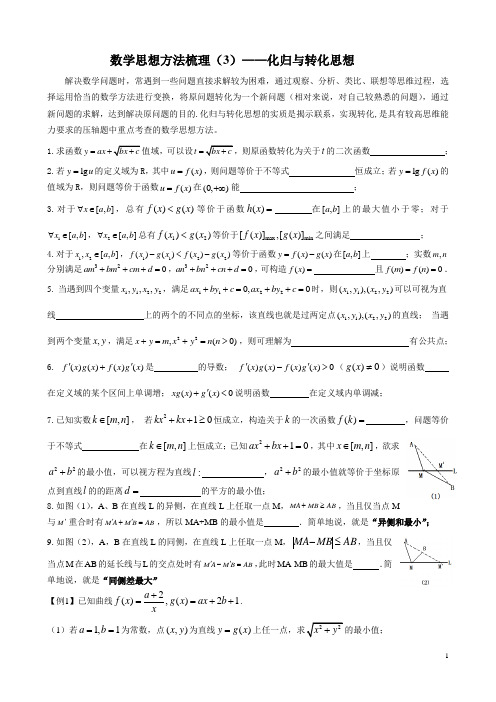 数学思想方法梳理（3）——化归与转化思想
解决数学问题时，常遇到一些问题直接求解较为困难，通过观察、分析、类比、联想等思维过程，选
择运用恰当的数学方法进行变换，将原问题转化为一个新问题（相对来说，对自己较熟悉的问题），通过
新问题的求解，达到解决原问题的目的.化归与转化思想的实质是揭示联系，实现转化,是具有较高思维能
力要求的压轴题中重点考查的数学思想方法。
1.求函数y=ax+√bx+c值域，可以设t=√bx+c，则原函数转化为关于t的二次函数 ；
2.若y=lg u的定义域为R，其中u=f(x)，则问题等价于不等式 恒成立；若y=lg f(x)的
值域为R，则问题等价于函数u=f(x)在(0,+∞)能 ；
3.对于∀x∈[a,b]，总有f(x)<g(x)等价于函数h(x)= 在[a,b]上的最大值小于零；对于
∀x₁∈[a,b]，∀x₂∈[a,b]总有f(x₁)<g(x₂)等价于[f(x)]max,[g(x)]min之间满足 ；
4.对于x₁,x₂∈[a,b]，f(x₁)-g(x₁)<f(x₂)-g(x₂)等价于函数y=f(x)-g(x)在[a,b]上 ；实数m,n
分别满足am³+bm²+cm+d=0，an³+bn²+cn+d=0，可构造f(x)= 且f(m)=f(n)=0。
5. 当遇到四个变量x₁,y₁,x₂,y₂，满足ax₁+by₁+c=0,ax₂+by₂+c=0时，则(x₁,y₁),(x₂,y₂)可以可视为直
线 上的两个的不同点的坐标，该直线也就是过两定点(x₁,y₁),(x₂,y₂)的直线； 当遇
到两个变量x,y，满足x+y=m,x²+y²=n(n>0)，则可理解为 有公共点；
6. f′(x)g(x)+f(x)g′(x)是 的导数； f′(x)g(x)-f(x)g′(x)>0（g(x)≠0）说明函数
在定义域的某个区间上单调增；xg(x)+g′(x)<0说明函数 在定义域内单调减；
7.已知实数k∈[m,n]， 若kx²+kx+1≥0恒成立，构造关于k的一次函数f(k)= ，问题等价
于不等式 在k∈[m,n]上恒成立；已知ax²+bx+1=0，其中x∈[m,n]，欲求
a²+b²的最小值，可以视方程为直线l： ，a²+b²的最小值就等于坐标原
点到直线l的的距离d= 的平方的最小值；
8.如图（1），A、B在直线L的异侧，在直线L上任取一点M，MA+MB≥AB，当且仅当点M
与M′重合时有M′A+M′B=AB，所以MA+MB的最小值是 ．简单地说，就是“异侧和最小”；
9.如图（2），A，B在直线L的同侧，在直线L上任取一点M，|MA-MB|≤AB，当且仅
当点M在AB的延长线与L的交点处时有M′A-M′B=AB,此时MA-MB的最大值是 .简
单地说，就是“同侧差最大”
A
M
M′
L
B
（1）
A
B
M
M′
L
(2)
【例1】已知曲线f(x)=(a+2)/x,g(x)=ax+2b+1.
（1）若a=1,b=1为常数，点(x,y)为直线y=g(x)上任一点，求√x²+y²的最小值；
1